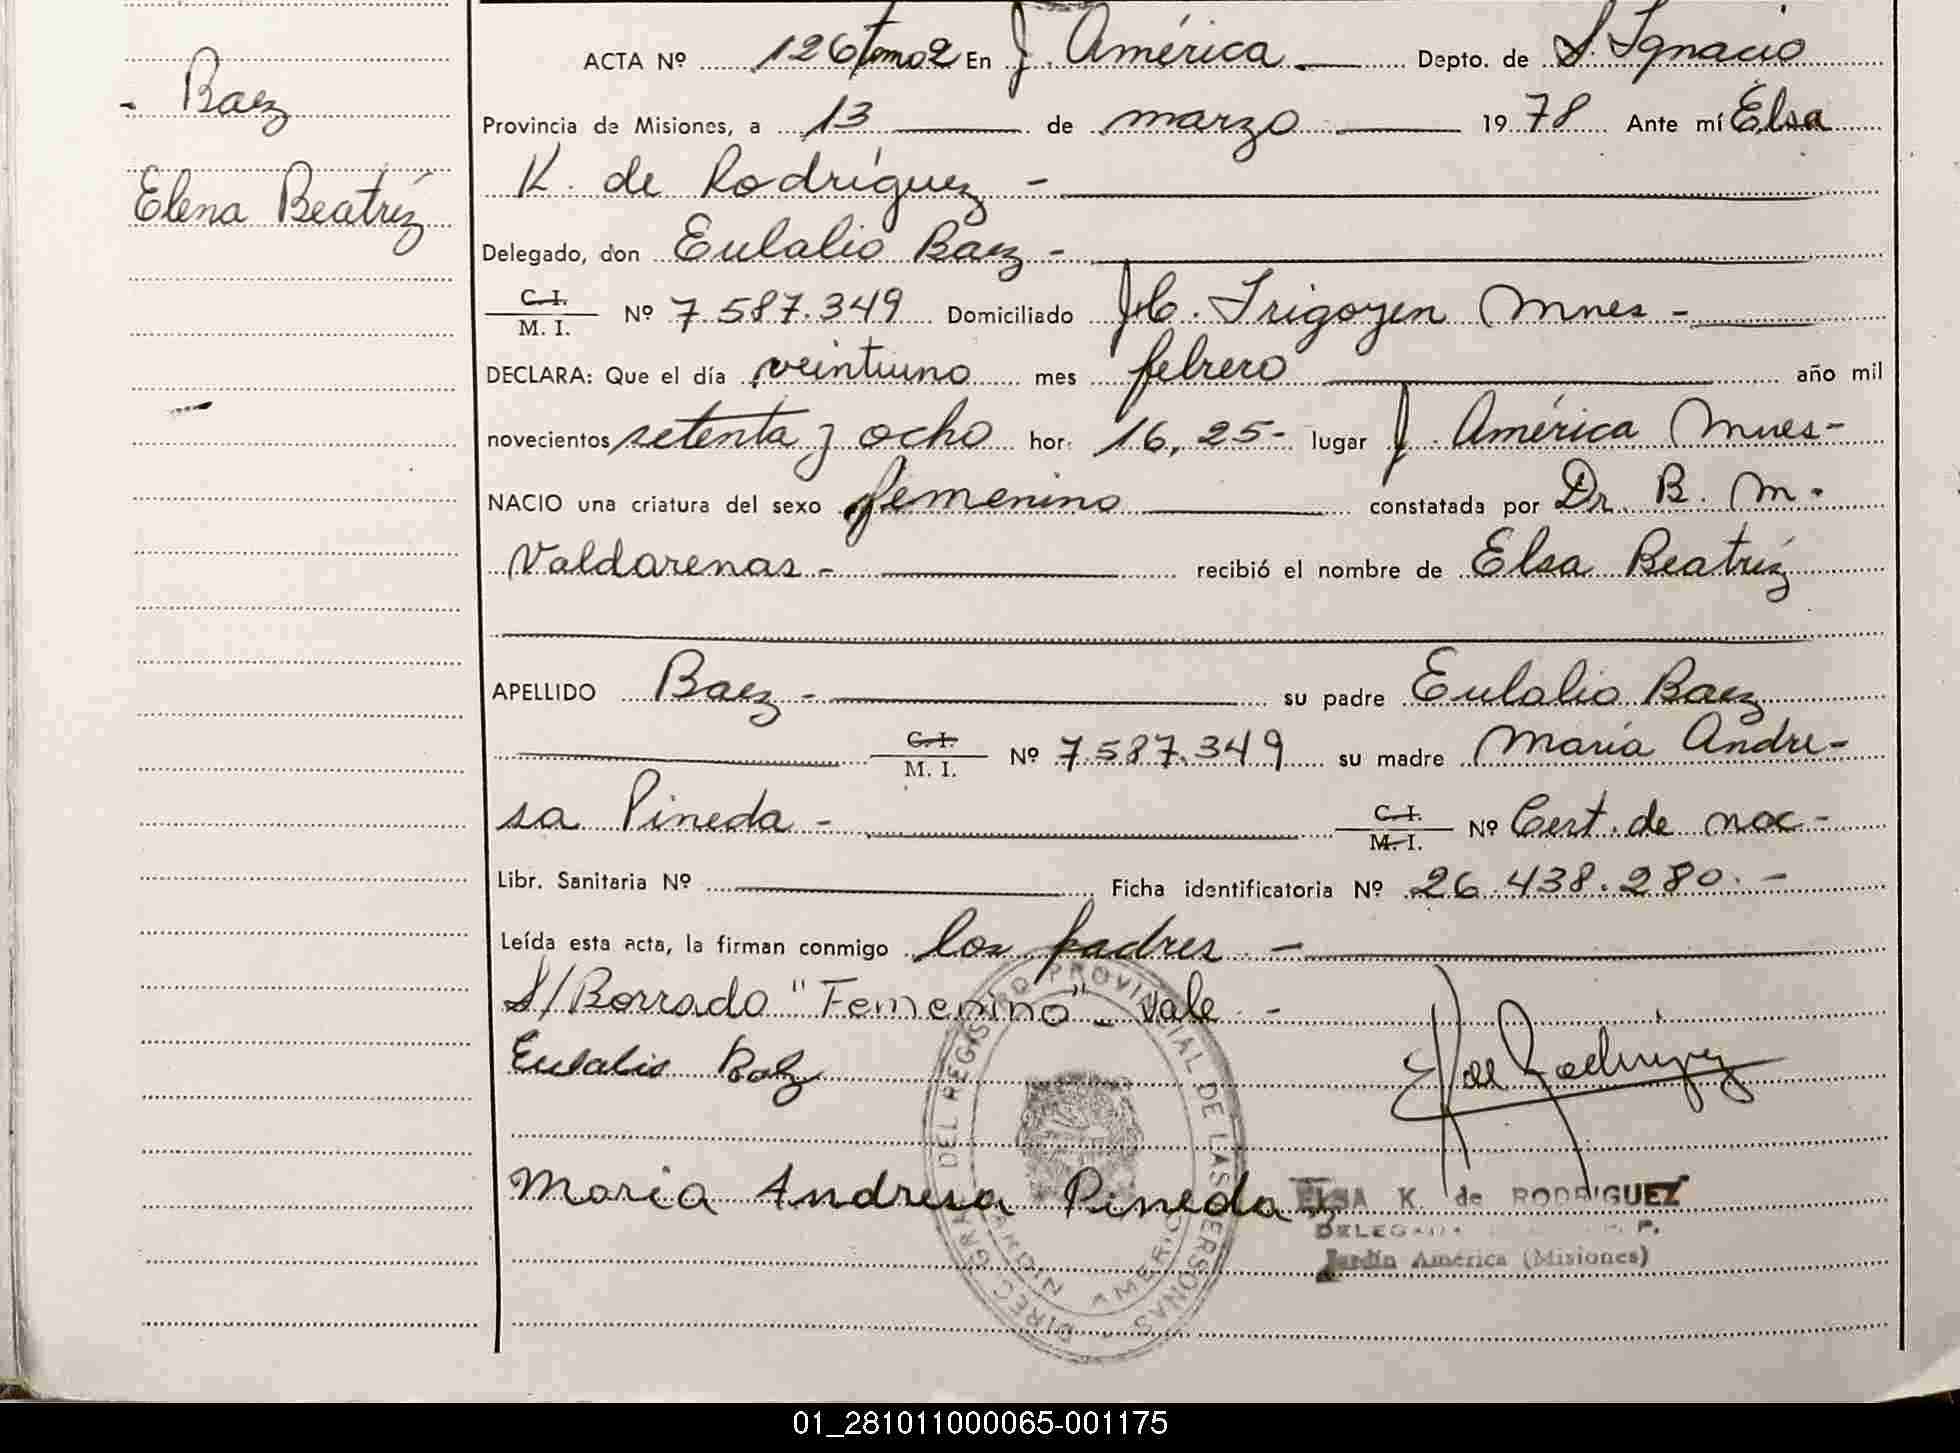 Baez
Elena Beatríz
ACTA Nº 126 tomo 2 En J. América Depto. de S. Ignacio
Provincia de Misiones, a 13 de marzo 1978 Ante mí Elsa
K. de Rodríguez -
Delegado, don Eulalio Baez -
C. I.
M. I. Nº 7.587.349 Domiciliado H. Irigoyen Mnes -
DECLARA: Que el día veintiuno mes febrero año mil
novecientos setenta y ocho hor: 16,25- lugar J. América Mnes-
NACIO una criatura del sexo femenino constatada por Dr. B. M.
Valdarenas - recibió el nombre de Elsa Beatríz
APELLIDO Baez - su padre Eulalio Baez
C. I.
M. I. Nº 7.587.349 su madre María Andre-
sa Pineda - C. I.
M. I. Nº Cert. de nac-
Libr. Sanitaria Nº Ficha identificatoria Nº 26.438.280. -
Leída esta acta, la firman conmigo los padres -
S/Borrado "Femenino" - Vale -
Eulalio Baez
Maria Andresa Pineda
ELSA K. de RODRIGUEZ
Jardín América (Misiones)
DIREC. GRAL. DEL REGISTRO PROVINCIAL DE LAS PERSONAS
JARDIN AMERICA
01_281011000065-001175